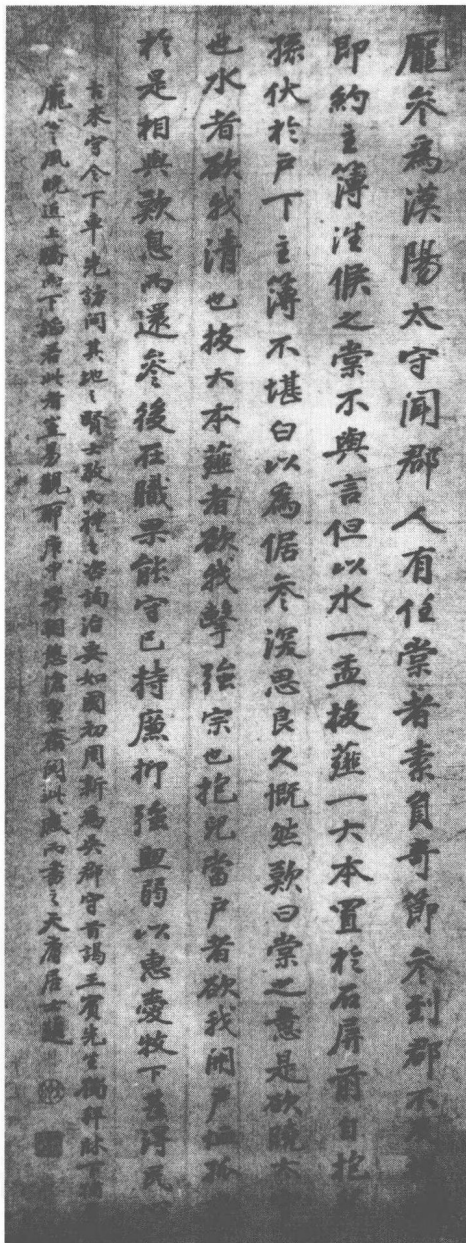 龐參為漢陽太守聞郡人有任棠者素負奇節參到郡不
即約主簿往候之棠不與言但以水一盂拔薤一大本置於石屏前自抱
孫伏於戶下主簿不堪白以為倨參深思良久慨然歎曰棠之意是欲曉太
也水者欲我清也拔大本薤者欲我擊強宗也抱兒當戶者欲我開戶恤孤
於是相與歎息而還參後在職果能守己持廉抑強 弱以惠愛牧下甚得民
古來守令下車先訪問其地之賢士敬而禮之咨詢治 如國初周新為吳郡守首謁王賓先生獨拜牀下猶
龐公之風 近上驕而下諂若此者豈易覯耶庚中 閱此感而書之天 居士題